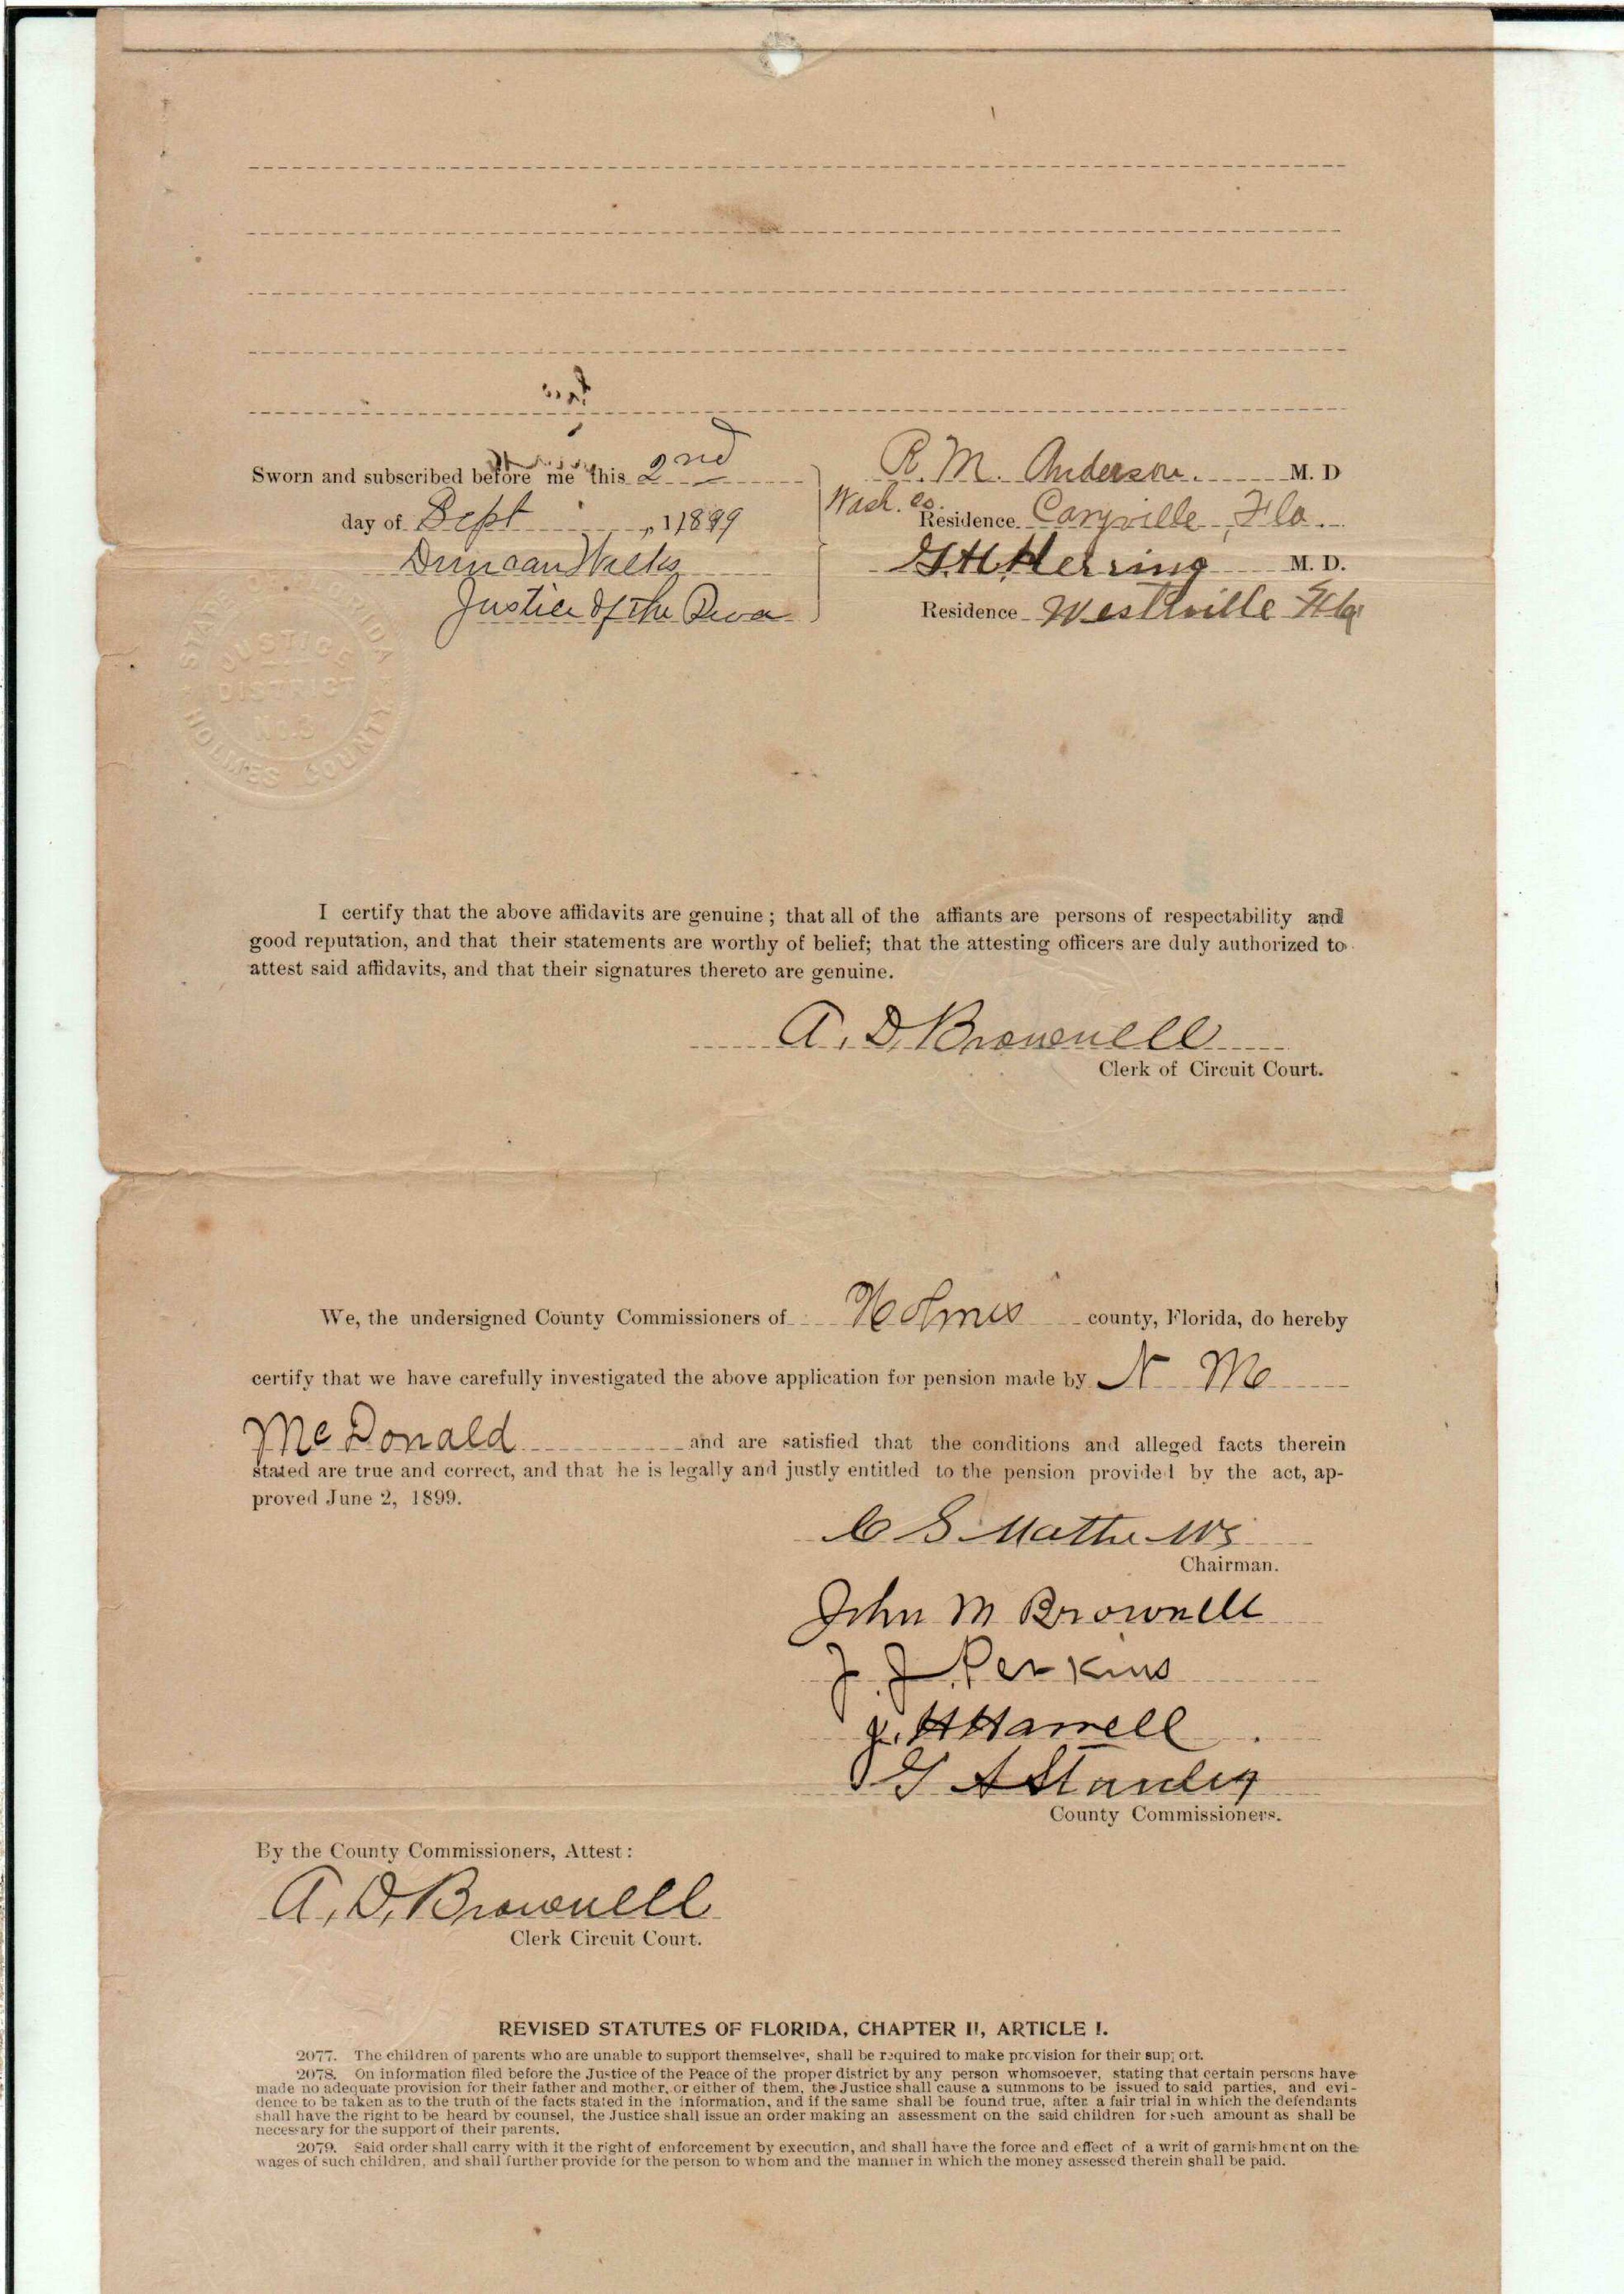 Sworn and subscribed before me this 2nd
day of Sept , 1899
Duncan
Justice of the
R. M. Anderson. M. D
Wash. co.
Residence Caryville, Fla.
G H Herring M. D.
Residence Westville Fla
STATE FLORIDA
JUSTICE
DISTRICT
No. 3
HOLMES COUNTY
I certify that the above affidavits are genuine; that all of the affiants are persons of respectability and
good reputation, and that their statements are worthy of belief; that the attesting officers are duly authorized to
attest said affidavits, and that their signatures thereto are genuine.
A. D. Brownell
Clerk of Circuit Court.
We, the undersigned County Commissioners of Holmes county, Florida, do hereby
certify that we have carefully investigated the above application for pension made by N Mc
McDonald and are satisfied that the conditions and alleged facts therein
stated are true and correct, and that he is legally and justly entitled to the pension provided by the act, ap-
proved June 2, 1899.
C S Mathews
Chairman.
John M Brownell
J. J. Perkins
J. H Harrell
G A Stanley
County Commissioners.
By the County Commissioners, Attest:
A. D. Brownell
Clerk Circuit Court.
REVISED STATUTES OF FLORIDA, CHAPTER II, ARTICLE I.
2077. The children of parents who are unable to support themselves, shall be required to make provision for their support.
2078. On information filed before the Justice of the Peace of the proper district by any person whomsoever, stating that certain persons have
made no adequate provision for their father and mother, or either of them, the Justice shall cause a summons to be issued to said parties, and evi-
dence to be taken as to the truth of the facts stated in the information, and if the same shall be found true, after a fair trial in which the defendants
shall have the right to be heard by counsel, the Justice shall issue an order making an assessment on the said children for such amount as shall be
necessary for the support of their parents.
2079. Said order shall carry with it the right of enforcement by execution, and shall have the force and effect of a writ of garnishment on the
wages of such children, and shall further provide for the person to whom and the manner in which the money assessed therein shall be paid.